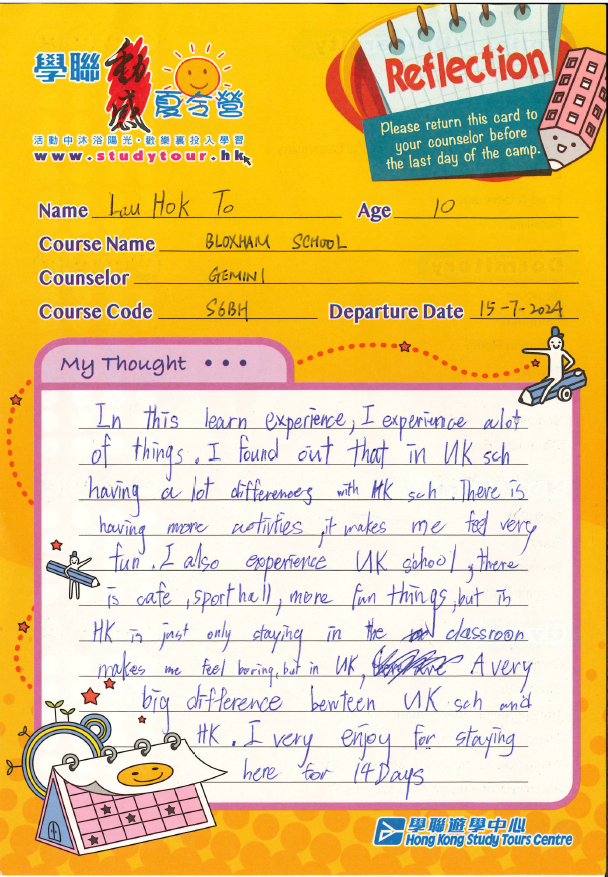 學聯 動感 夏令營
活動中沐浴陽光·歡樂裏投入學習
www.studytour.hk
Reflection
Please return this card to
your counselor before
the last day of the camp.
Name Lau Hok To Age 10
Course Name BLOXHAM SCHOOL
Counselor GEMINI
Course Code S6BH Departure Date 15-7-2024
My Thought • • •
In this learn experience, I experience alot
of things. I found out that in UK sch
having a lot differences with HK sch. There is
having more activties, it makes me feel very
fun. I also experience UK school, there
is cafe, sporthall, more fun things, but in
HK is just only staying in the classroon
makes me feel boring, but in UK, A very
big difference bewteen UK sch and
HK. I very enjoy for staying
here for 14 Days
學聯遊學中心
Hong Kong Study Tours Centre